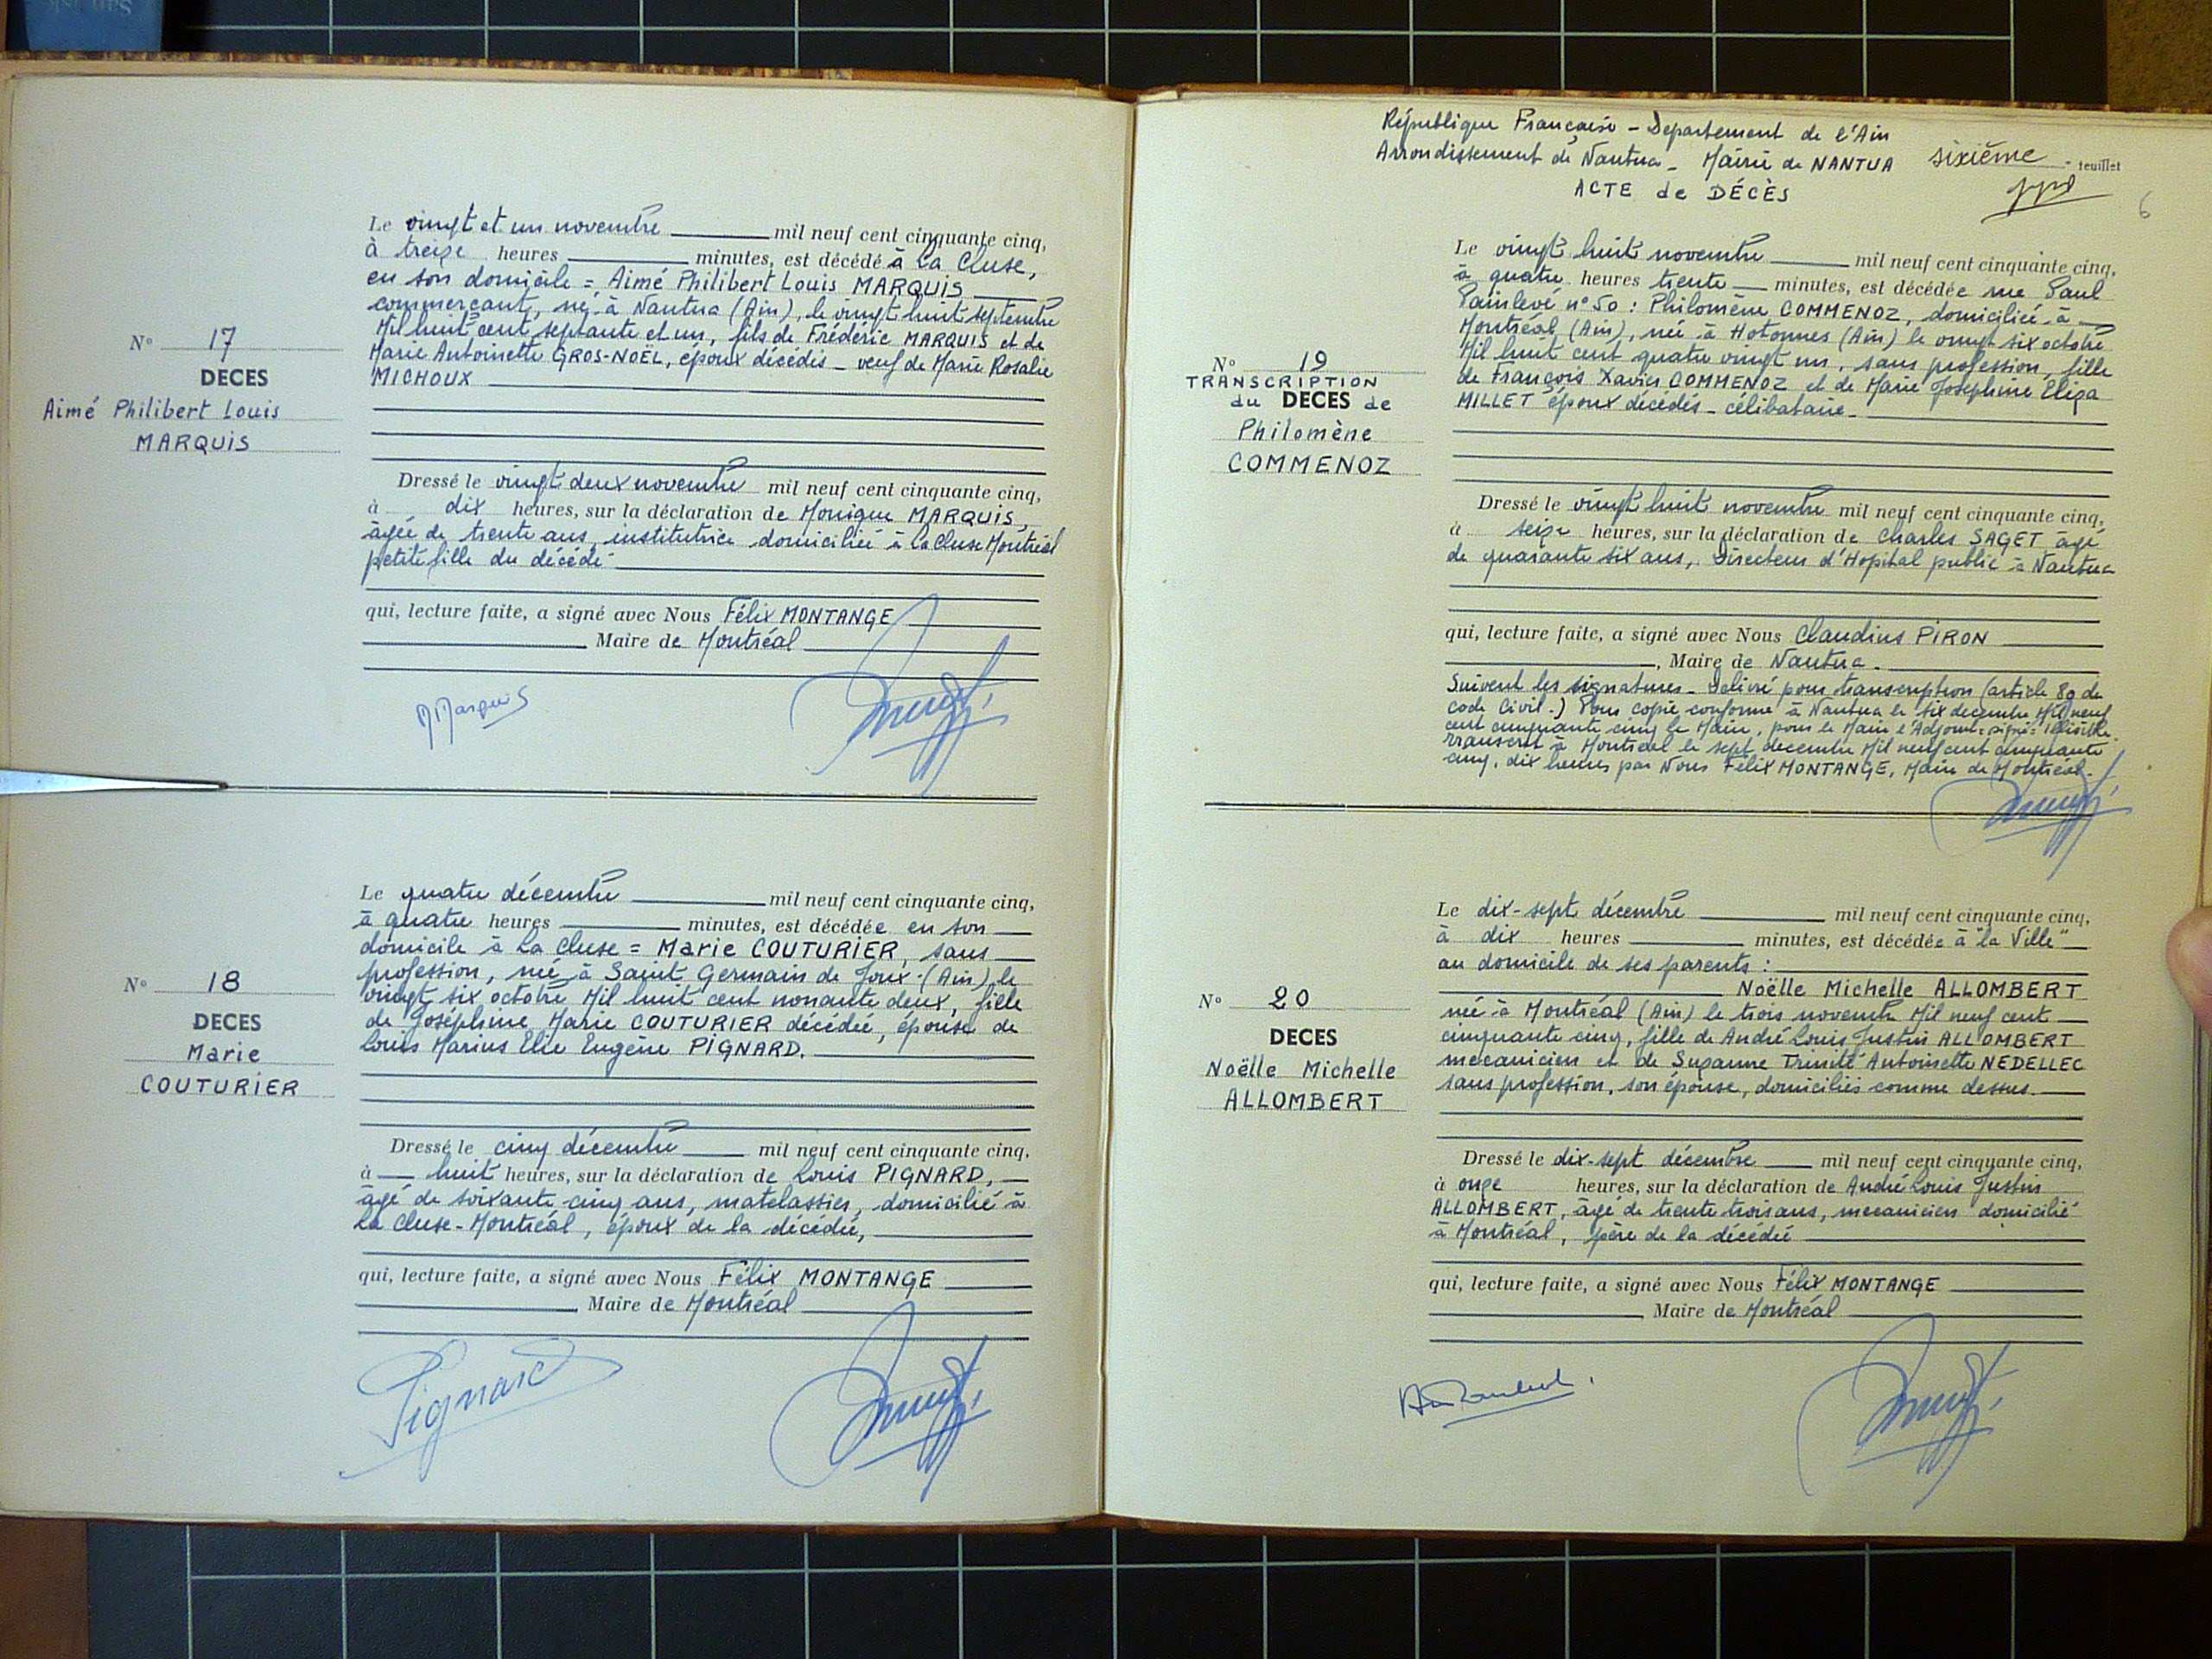 Le vingt et un novembre mil neuf cent cinquante cinq,
à treize heures minutes, est décédé à La Cluse,
en son domicile = Aimé Philibert Louis MARQUIS
commerçant, né à Nantua (Ain), le vingt huit septembre
Mil huit cent septante et un, fils de Frédéric MARQUIS et de
Marie Antoinette GROS-NOËL, époux décédés _ veuf de Marie Rosalie
MICHOUX
N° 17
DECES
Aimé Philibert Louis
MARQUIS
Dressé le vingt deux novembre mil neuf cent cinquante cinq,
à dix heures, sur la déclaration de Monique MARQUIS,
âgée de trente ans, institutrice domiciliée à La Cluse Montréal
petite fille du décédé
qui, lecture faite, a signé avec Nous Félix MONTANGE
Maire de Montréal
M Marquis
Le quatre décembre mil neuf cent cinquante cinq,
à quatre heures minutes, est décédée en son
domicile à La Cluse = Marie COUTURIER, sans
profession, née à Saint Germain de Joux (Ain) le
vingt six octobre Mil huit cent nonante deux, fille
de Joséphine Marie COUTURIER décédée, épouse de
Louis Marius Elie Eugène PIGNARD.
N° 18
DECES
Marie
COUTURIER
Dressé le cinq décembre mil neuf cent cinquante cinq,
à huit heures, sur la déclaration de Louis PIGNARD,
âgé de soixante cinq ans, matelassier, domicilié à
La Cluse-Montréal, époux de la décédée,
qui, lecture faite, a signé avec Nous Félix MONTANGE
Maire de Montréal
Pignard
République Française - Departement de l'Ain
Arrondissement de Nantua - Mairie de NANTUA sixième feuillet
ACTE de DÉCÈS
6
Le vingt huit novembre mil neuf cent cinquante cinq,
à quatre heures trente minutes, est décédée rue Paul
Painlevé n° 50 : Philomène COMMENOZ, domiciliée à
Montréal (Ain), née à Hotonnes (Ain) le vingt six octobre
Mil huit cent quatre vingt un, sans profession, fille
de François Xavier COMMENOZ et de Marie Joséphine Eliza
MILLET époux décédés _ célibataire _
N° 19
TRANSCRIPTION
du DECES de
Philomène
COMMENOZ
Dressé le vingt huit novembre mil neuf cent cinquante cinq,
à seize heures, sur la déclaration de Charles SAGET âgé
de quarante six ans, Directeur d'Hopital public à Nantua
qui, lecture faite, a signé avec Nous Claudius PIRON
, Maire de Nantua.
Suivent les signatures _ Délivré pour transcription (article 80 du
code Civil.) Pour copie conforme à Nantua le six decembre Mil neuf
cent cinquante cinq le Maire, pour le Maire l'Adjoint = signé = Illisible.
Transcrit à Montréal le sept decembre Mil neuf cent cinquante
cinq, dix heures par Nous Félix MONTANGE, Maire de Montréal.
Le dix-sept décembre mil neuf cent cinquante cinq,
à dix heures minutes, est décédée à "la Ville"
au domicile de ses parents :
Noëlle Michelle ALLOMBERT
née à Montréal (Ain) le trois novembre Mil neuf cent
cinquante cinq, fille de André Louis Justin ALLOMBERT
mecanicien et de Suzanne Trinité Antoinette NEDELLEC
sans profession, son épouse, domiciliés comme dessus.
N° 20
DECES
Noëlle Michelle
ALLOMBERT
Dressé le dix-sept décembre mil neuf cent cinquante cinq,
à onze heures, sur la déclaration de André Louis Justin
ALLOMBERT, âgé de trente trois ans, mecanicien domicilié
à Montréal, père de la décédée
qui, lecture faite, a signé avec Nous Félix MONTANGE
Maire de Montréal